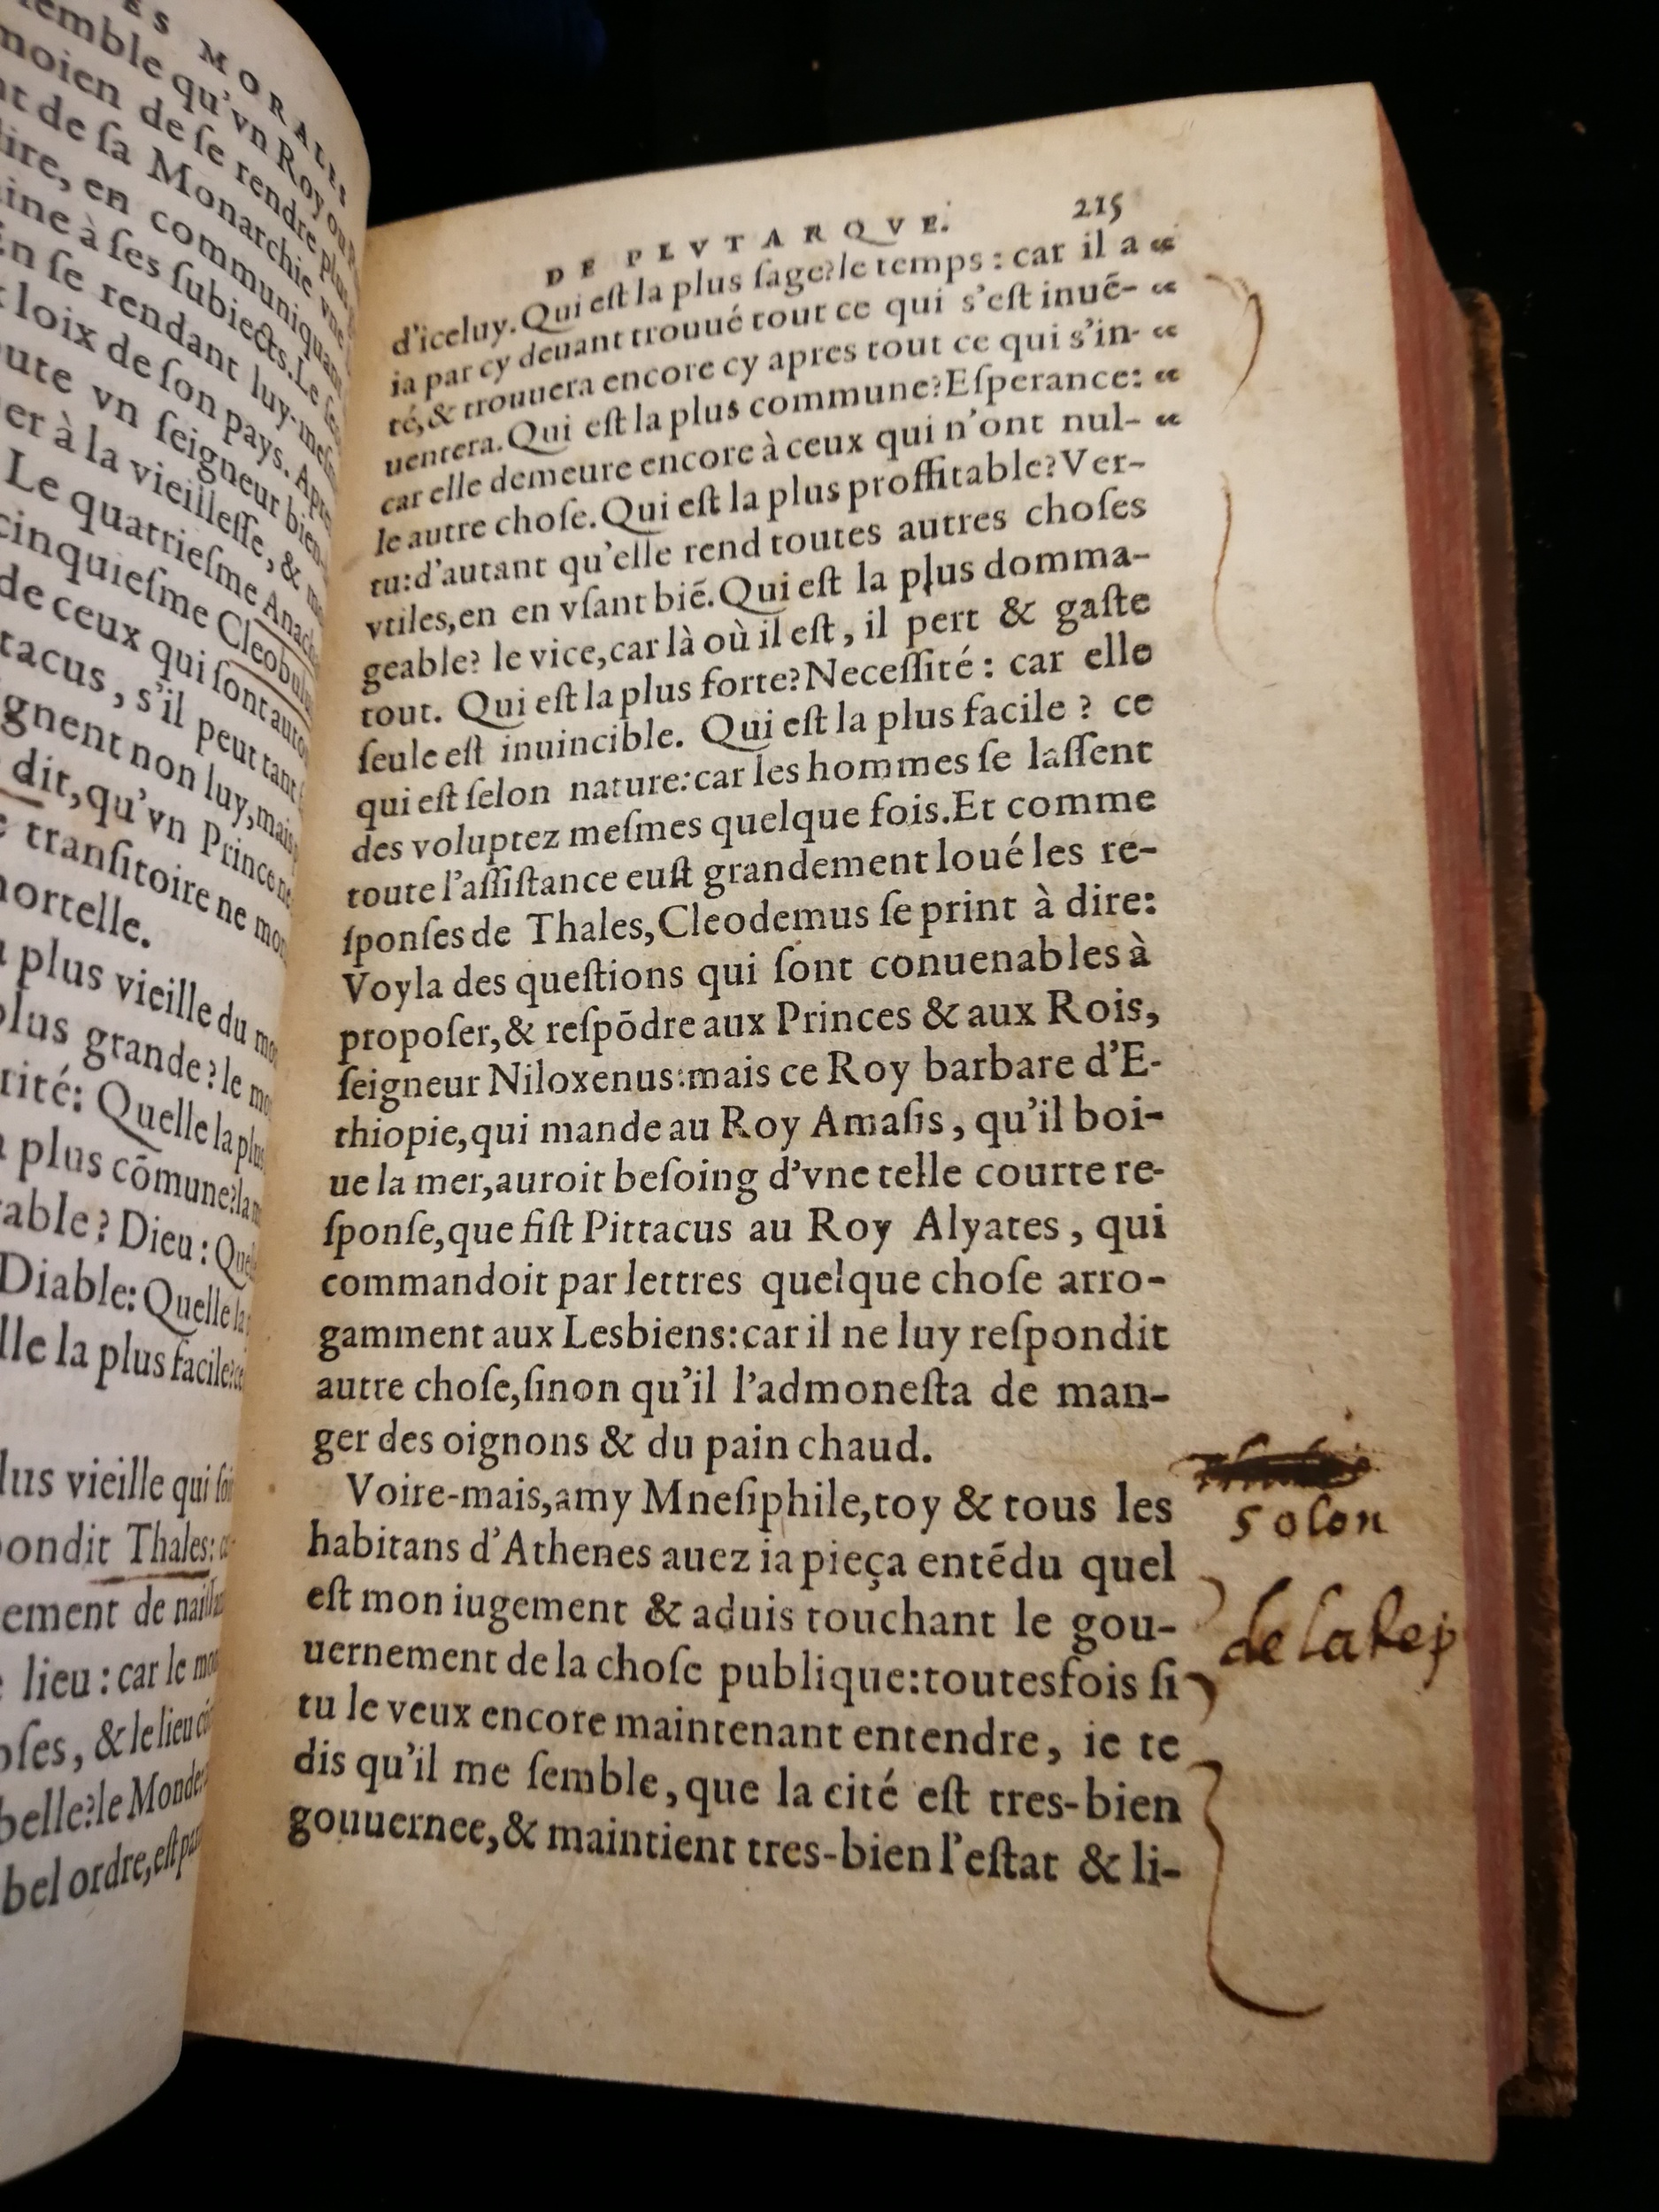 ES MORALES
emble qu'vn Roy ou
moien de ſe rendre plus
nt de ſa Monarchie vne
dire, en communiquant
ine à ſes ſubiects. Le
En ſe rendant luy-meſm
loix de ſon pays. Apre
oute vn ſeigneur bien-
er à la vieilleſſe, &
Le quatrieſme Anach
cinquieſme Cleobulus
de ceux qui ſont autou
tacus, s'il peut tant
gnent non luy, mais
dit, qu'vn Prince ne
e tranſitoire ne mo
mortelle.
plus vieille du mo
plus grande? le mo
rité: Quelle la plus
a plus cõmune? la
able? Dieu: Que
Diable: Quelle la
lle la plus facile? ce
lus vieille qui ſoi
pondit Thales:
ement de naiſſan
lieu: car le mon
oſes, & le lieu
belle? le Monde:
bel ordre, eſt par
DE PLVTARQVE. 215
d'iceluy. Qui eſt la plus ſage? le temps: car il a “
ia par cy deuant trouué tout ce qui s'eſt inuē- “
té, & trouuera encore cy apres tout ce qui s'in- “
uentera. Qui eſt la plus commune? Eſperance: “
car elle demeure encore à ceux qui n'ont nul- “
le autre choſe. Qui eſt la plus proffitable? Ver-
tu: d'autant qu'elle rend toutes autres choſes
vtiles, en en vſant biē. Qui eſt la plus domma-
geable? le vice, car là où il eſt, il pert & gaſte
tout. Qui eſt la plus forte? Neceſſité: car elle
ſeule eſt inuincible. Qui eſt la plus facile? ce
qui eſt ſelon nature: car les hommes ſe laſſent
des voluptez meſmes quelque fois. Et comme
toute l'aſſiſtance euſt grandement loué les re-
ſponſes de Thales, Cleodemus ſe print à dire:
Voyla des queſtions qui ſont conuenables à
propoſer, & reſpõdre aux Princes & aux Rois,
ſeigneur Niloxenus: mais ce Roy barbare d'E-
thiopie, qui mande au Roy Amaſis, qu'il boi-
ue la mer, auroit beſoing d'vne telle courte re-
ſponſe, que fiſt Pittacus au Roy Alyates, qui
commandoit par lettres quelque choſe arro-
gamment aux Lesbiens: car il ne luy reſpondit
autre choſe, ſinon qu'il l'admoneſta de man-
ger des oignons & du pain chaud.
Voire-mais, amy Mneſiphile, toy & tous les
habitans d'Athenes auez ia pieça entēdu quel
eſt mon iugement & aduis touchant le gou-
uernement de la choſe publique: toutesfois ſi
tu le veux encore maintenant entendre, ie te
dis qu'il me ſemble, que la cité eſt tres-bien
gouuernee, & maintient tres-bien l'eſtat & li-
solon
de la Rep